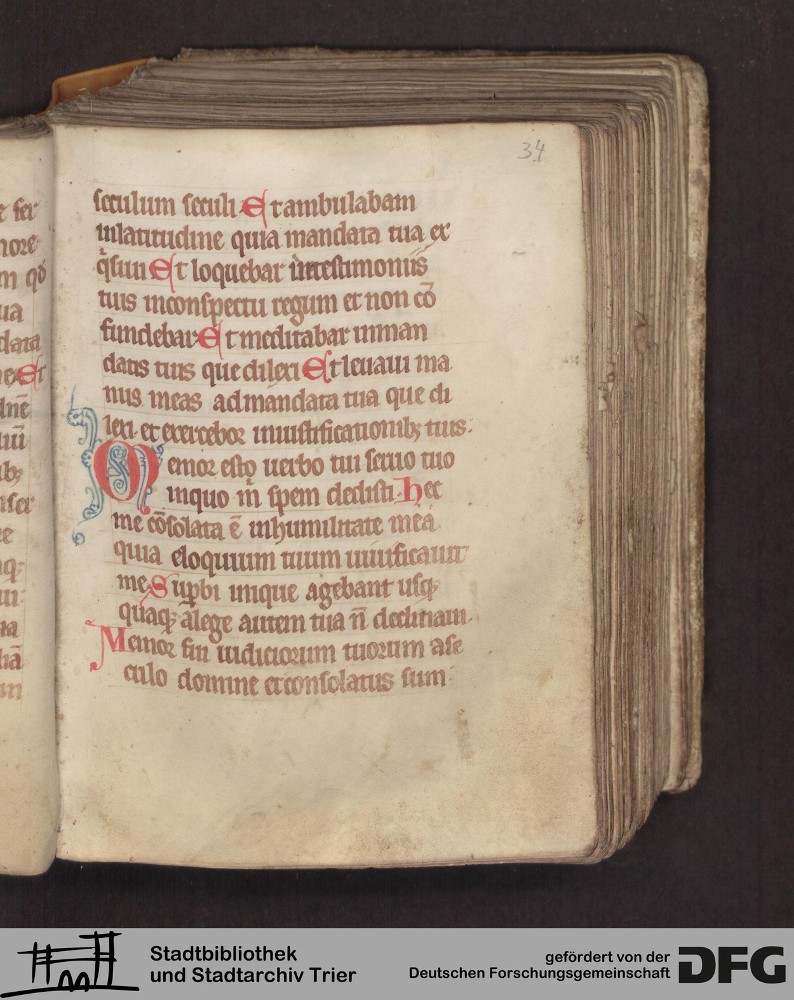 34
seculum seculi Et ambulabam
inlatitudine quia mandata tua ex
q̈siui Et loquebar intestimoniis
tuis inconspectu regum et non cō
fundebar Et meditabar inman
datis tuis que dilexi Et leuaui ma
nus meas admandata tua que di
lexi et exercebor iniustificationib; tuis.
Memor esto uerbo tui seruo tuo
inquo m̄ spem dedisti. hec
me cōsolata ē inhumilitate mea
quia eloquium tuum uiuificauit
me Supbi inique agebant usq;
quaq; alege autem tua n̄ declinaui.
Memor fui iudiciorum tuorum ase
culo domine etconsolatus sum
Stadtbibliothek
und Stadtarchiv Trier
gefördert von der
Deutschen Forschungsgemeinschaft
DFG